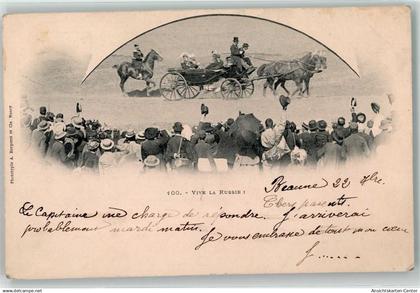 100. - VIVE LA RUSSIE !
Phototypie A. Bergeret et Cie. Nancy
Beaune 22 Xbre.
Chers parents.
Le Capitaine me charge de répondre. J'arriverai
probablement mardi matin.
Je vous embrasse de tout mon cœur
J......
akpool.de
Ansichtskarten-Center